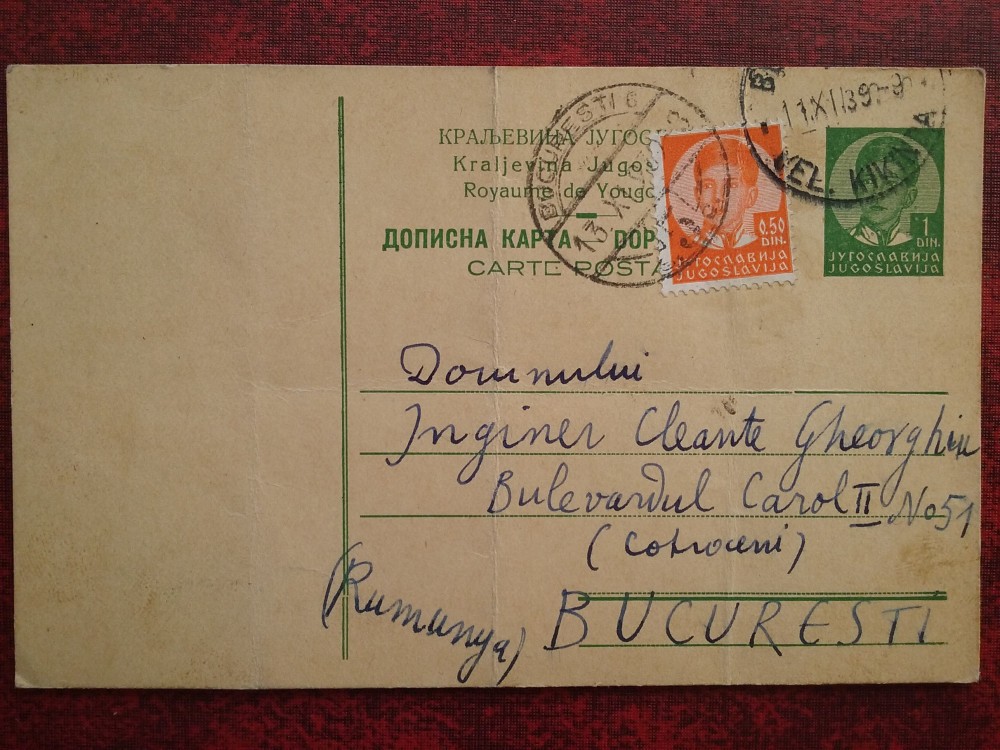 КРАЉЕВИНА ЈУГОС
Kraljevina Jugos
Royaume de Yougo
ДОПИСНА КАРТА – DOP
CARTE POSTA
BUCUREȘTI 6
13. X
11 XII 39-9
VEL. KIKINDA
0.50
DIN.
ЈУГОСЛАВИЈА
JUGOSLAVIJA
1
DIN.
ЈУГОСЛАВИЈА
JUGOSLAVIJA
Domnului
Inginer Cleante Gheorghiu
Bulevardul Carol II No 51
(Cotroceni)
BUCURESTI
(Rumunya)